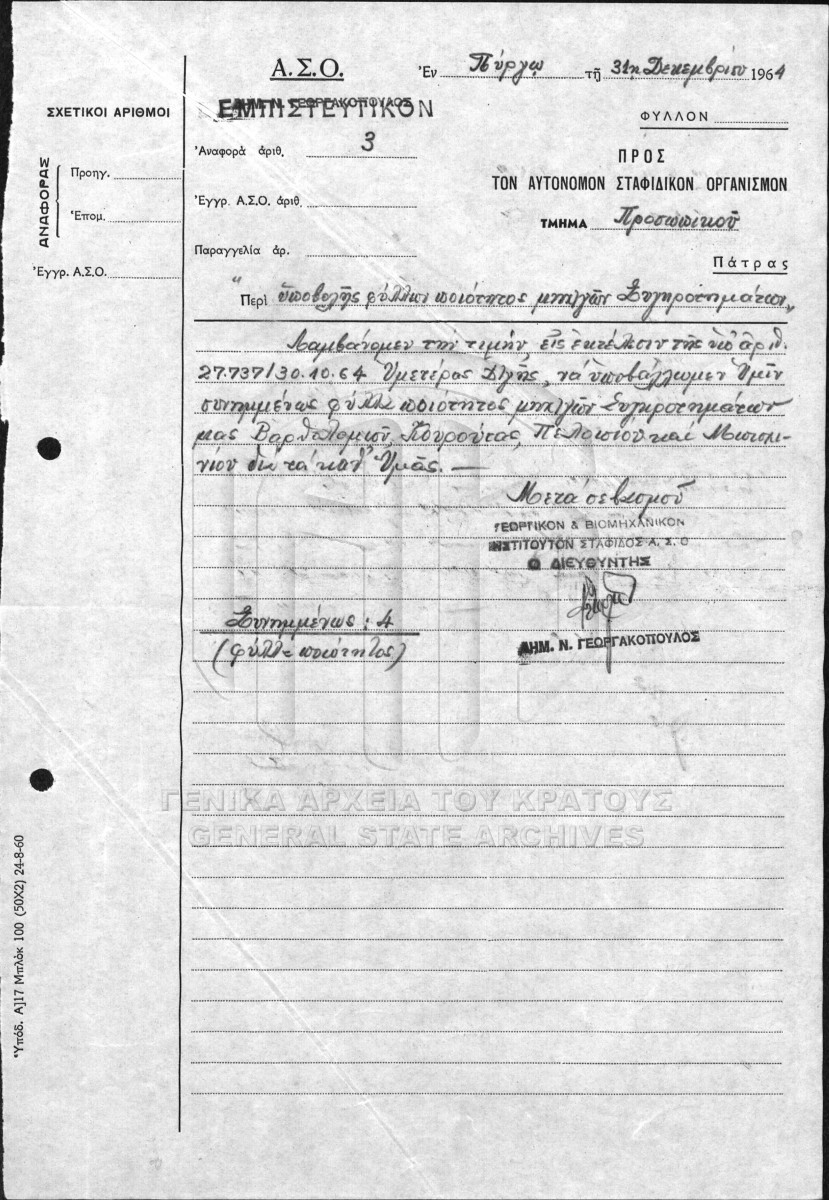 Α.Σ.Ο.
Ἐν Πύργῳ τῇ 31η Δεκεμβρίου 1964
ΣΧΕΤΙΚΟΙ ΑΡΙΘΜΟΙ
ΔΗΜ. Ν. ΓΕΩΡΓΑΚΟΠΟΥΛΟΣ
ΕΜΠΙΣΤΕΥΤΙΚΟΝ
ΦΥΛΛΟΝ
ΑΝΑΦΟΡΑΣ
Προηγ.
Ἑπομ.
Ἐγγρ. Α.Σ.Ο.
Ἀναφορά ἀριθ. 3
Ἐγγρ. Α.Σ.Ο. ἀριθ.
Παραγγελία ἀρ.
ΠΡΟΣ
ΤΟΝ ΑΥΤΟΝΟΜΟΝ ΣΤΑΦΙΔΙΚΟΝ ΟΡΓΑΝΙΣΜΟΝ
ΤΜΗΜΑ Προσωπικοῦ
Πάτρας
"Περὶ ὑποβολῆς φύλλων ποιότητος μηχ/γῶν Συγκροτημάτων"
Λαμβάνομεν τὴν τιμήν, εἰς ἐκτέλεσιν τῆς ὑπ' ἀριθ.
27.737/30.10.64 Ὑμετέρας Δ/γῆς, νὰ ὑποβάλλωμεν Ὑμῖν
συνημμένως φύλλα ποιότητος μηχ/γῶν Συγκροτημάτων
μας Βαρθολομιοῦ, Κουρούτας, Πελοπίου καὶ
διὰ τὰ καθ' Ὑμᾶς. —
Μετὰ σεβασμοῦ
ΓΕΩΡΓΙΚΟΝ & ΒΙΟΜΗΧΑΝΙΚΟΝ
ΙΝΣΤΙΤΟΥΤΟΝ ΣΤΑΦΙΔΟΣ Α. Σ. Ο
Ο ΔΙΕΥΘΥΝΤΗΣ
ΔΗΜ. Ν. ΓΕΩΡΓΑΚΟΠΟΥΛΟΣ
Συνημμένως : 4
(φύλλα ποιότητος)
ΓΕΝΙΚΑ ΑΡΧΕΙΑ ΤΟΥ ΚΡΑΤΟΥΣ
GENERAL STATE ARCHIVES
Ὑπόδ. Α]17 Μπλόκ 100 (50Χ2) 24-8-60